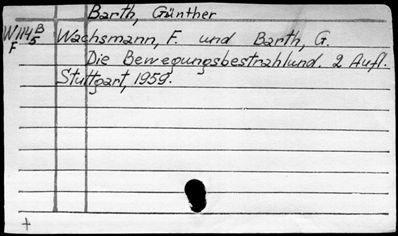 Barth, Günther
W1145 B Wachsmann, F. und Barth, G.
F 5 Die Bewegungsbestrahlund. 2 Aufl.
Stuttgart, 1959.
+